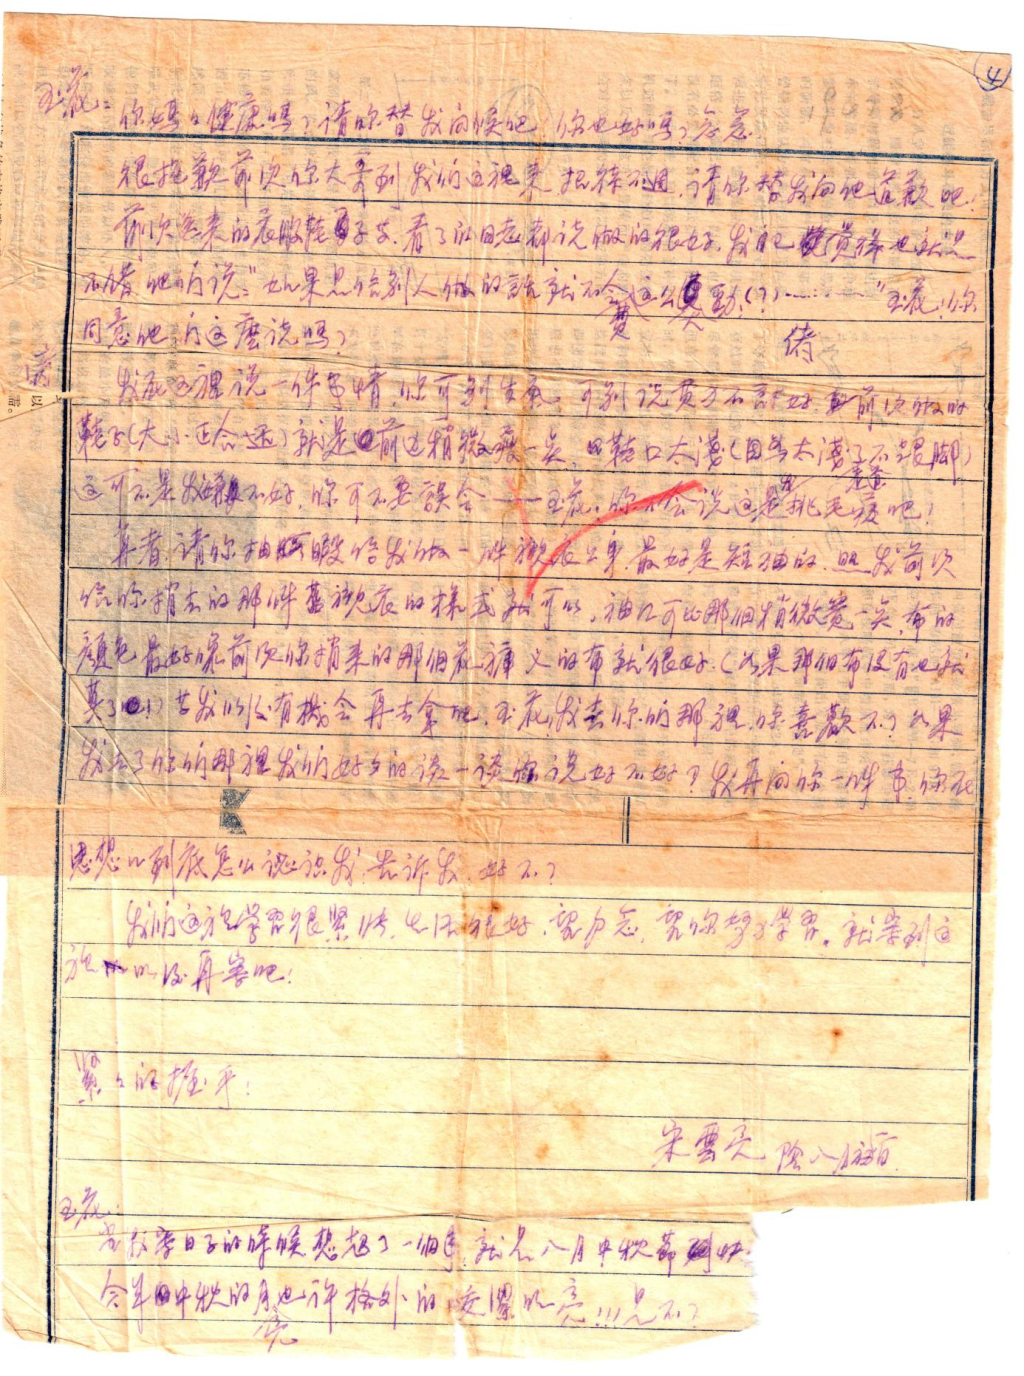 玉花：
你妈妈健康吗？请你替我问候吧 你也好吗？念念
很抱歉前次你大哥到我们这裡来招待不周，请你替我向他道歉吧！
前次寄来的衣服鞋子等，看了的同志都说做的很好，我也觉得也就是
不错 他们说：“如果是给别人做的話就不会这么费劲（？）……”玉花！你
同意他们这麽说吗？
我在这裡说一件事情，你可别生氣，可别说费力不討好，前次做的
鞋子（大小正合适）就是前边稍微瘦一点，鞋口太浅（因为太浅了不跟脚）
这可不是我嫌不好，你可不要誤会——玉花，你不会说这是挑毛病吧！
再者，请你抽暇给我做一件襯衣，最好是短袖的，照我前次
给你捎去的那件舊襯衣的樣式就可以，袖口可比那個稍微宽一点，布的
顏色最好像前次你捎来的那個花褲义的布就很好。（如果那個布没有也就
算了！）等我以后有機会再去拿吧，玉花，我去你们那裡，你喜歡不？如果
我去了你们那裡我们好好的谈一谈你说好不好？我再问你一件事，你在
思想上到底怎么認识我，告诉我，好不？
我们这裡学習很緊張，生活很好，望勿念，望你努力学習。就寫到这
裡 以后再寫吧！
緊緊的握手！
宋雲亮 陰八月
玉花：
当我寫日子的時候想起了一個事，就是八月中秋節
今年中秋的月亮也许格外的 明亮！！！是不？